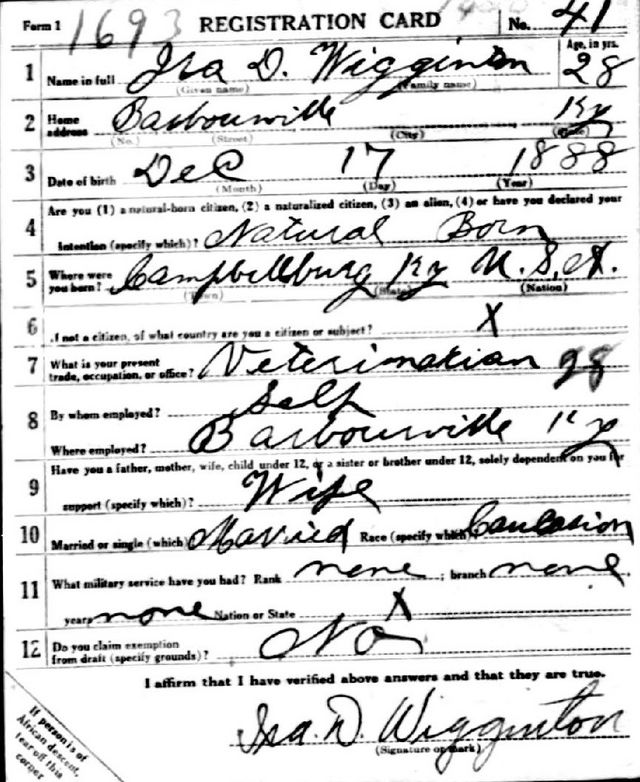 Form 1 1693 REGISTRATION CARD No. 41
Age, in yrs.
1 Name in full Ira D. Wigginton 28
(Given name) (Family name)
2 Home address Barbourville Ky
(No.) (Street) (City) (State)
3 Date of birth Dec 17 1888
(Month) (Day) (Year)
4 Are you (1) a natural-born citizen, (2) a naturalized citizen, (3) an alien, (4) or have you declared your
intention (specify which)? Natural Born
5 Where were you born? Campbellburg Ky U.S.A.
(Town) (State) (Nation)
6 If not a citizen, of what country are you a citizen or subject? X
7 What is your present trade, occupation, or office? Veterinarian 28
8 By whom employed? Self
Where employed? Barbourville Ky
9 Have you a father, mother, wife, child under 12, or a sister or brother under 12, solely dependent on you for
support (specify which)? Wife
10 Married or single (which) Married Race (specify which) Caucasion
11 What military service have you had? Rank none ; branch none
years none Nation or State X
12 Do you claim exemption from draft (specify grounds)? No
I affirm that I have verified above answers and that they are true.
Ira. D. Wigginton
(Signature or mark)
If person is of
African descent,
tear off this
corner